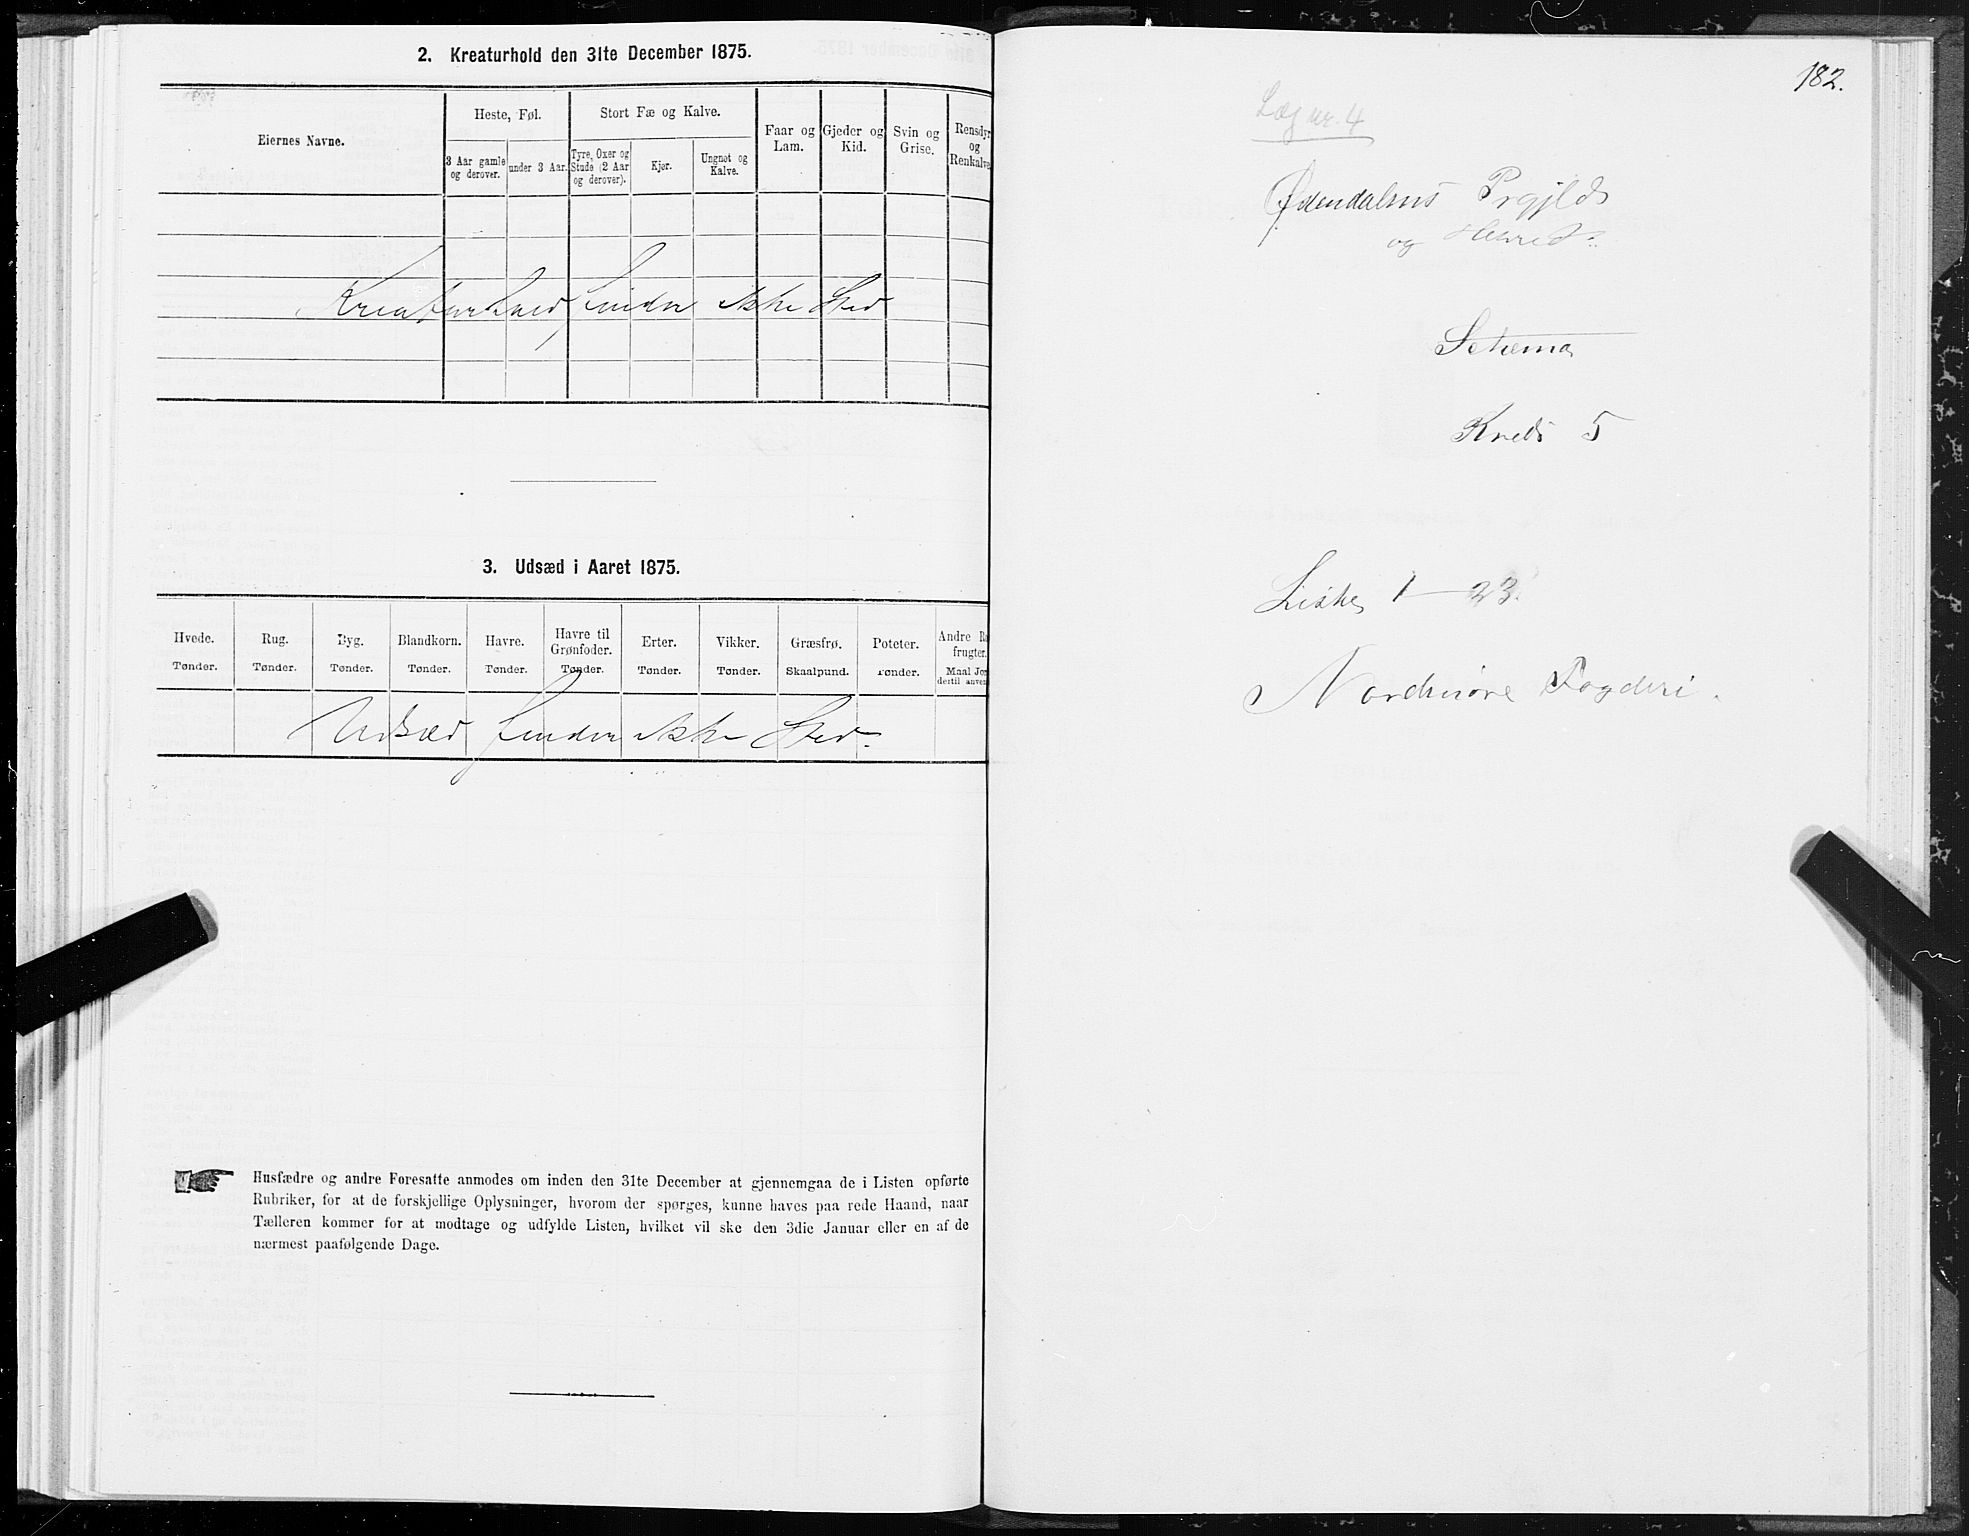 2. Kreaturhold den 31te December 1875.
Eiernes Navne.
Heste, Føl.
Stort Fæ og Kalve.
Faar og Lam.
Gjeder og Kid.
Svin og Grise.
Rensdyr og Renkalve
3 Aar gamle og derover.
under 3 Aar.
Tyre, Oxer og Stude (2 Aar og derover).
Kjør.
Ungnøt og Kalve.
Kreaturhold finder ikke Sted
3. Udsæd i Aaret 1875.
Hvede. Tønder.
Rug. Tønder.
Byg. Tønder.
Blandkorn. Tønder.
Havre. Tønder.
Havre til Grønfoder. Tønder.
Erter. Tønder.
Vikker. Tønder.
Græsfrø. Skaalpund.
Poteter. Tønder.
Andre Ro frugter. Maal Jor dertil anven
Udsæd finder ikke Sted.
Husfædre og andre Foresatte anmodes om inden den 31te December at gjennemgaa de i Listen opførte
Rubriker, for at de forskjellige Oplysninger, hvorom der spørges, kunne haves paa rede Haand, naar
Tælleren kommer for at modtage og udfylde Listen, hvilket vil ske den 3die Januar eller en af de
nærmest paafølgende Dage.
182.
Læg nr. 4
Prgjld
og Herred
Schema
Kreds 5
Liste 1 — 23.
Nordmøre Fogderi.